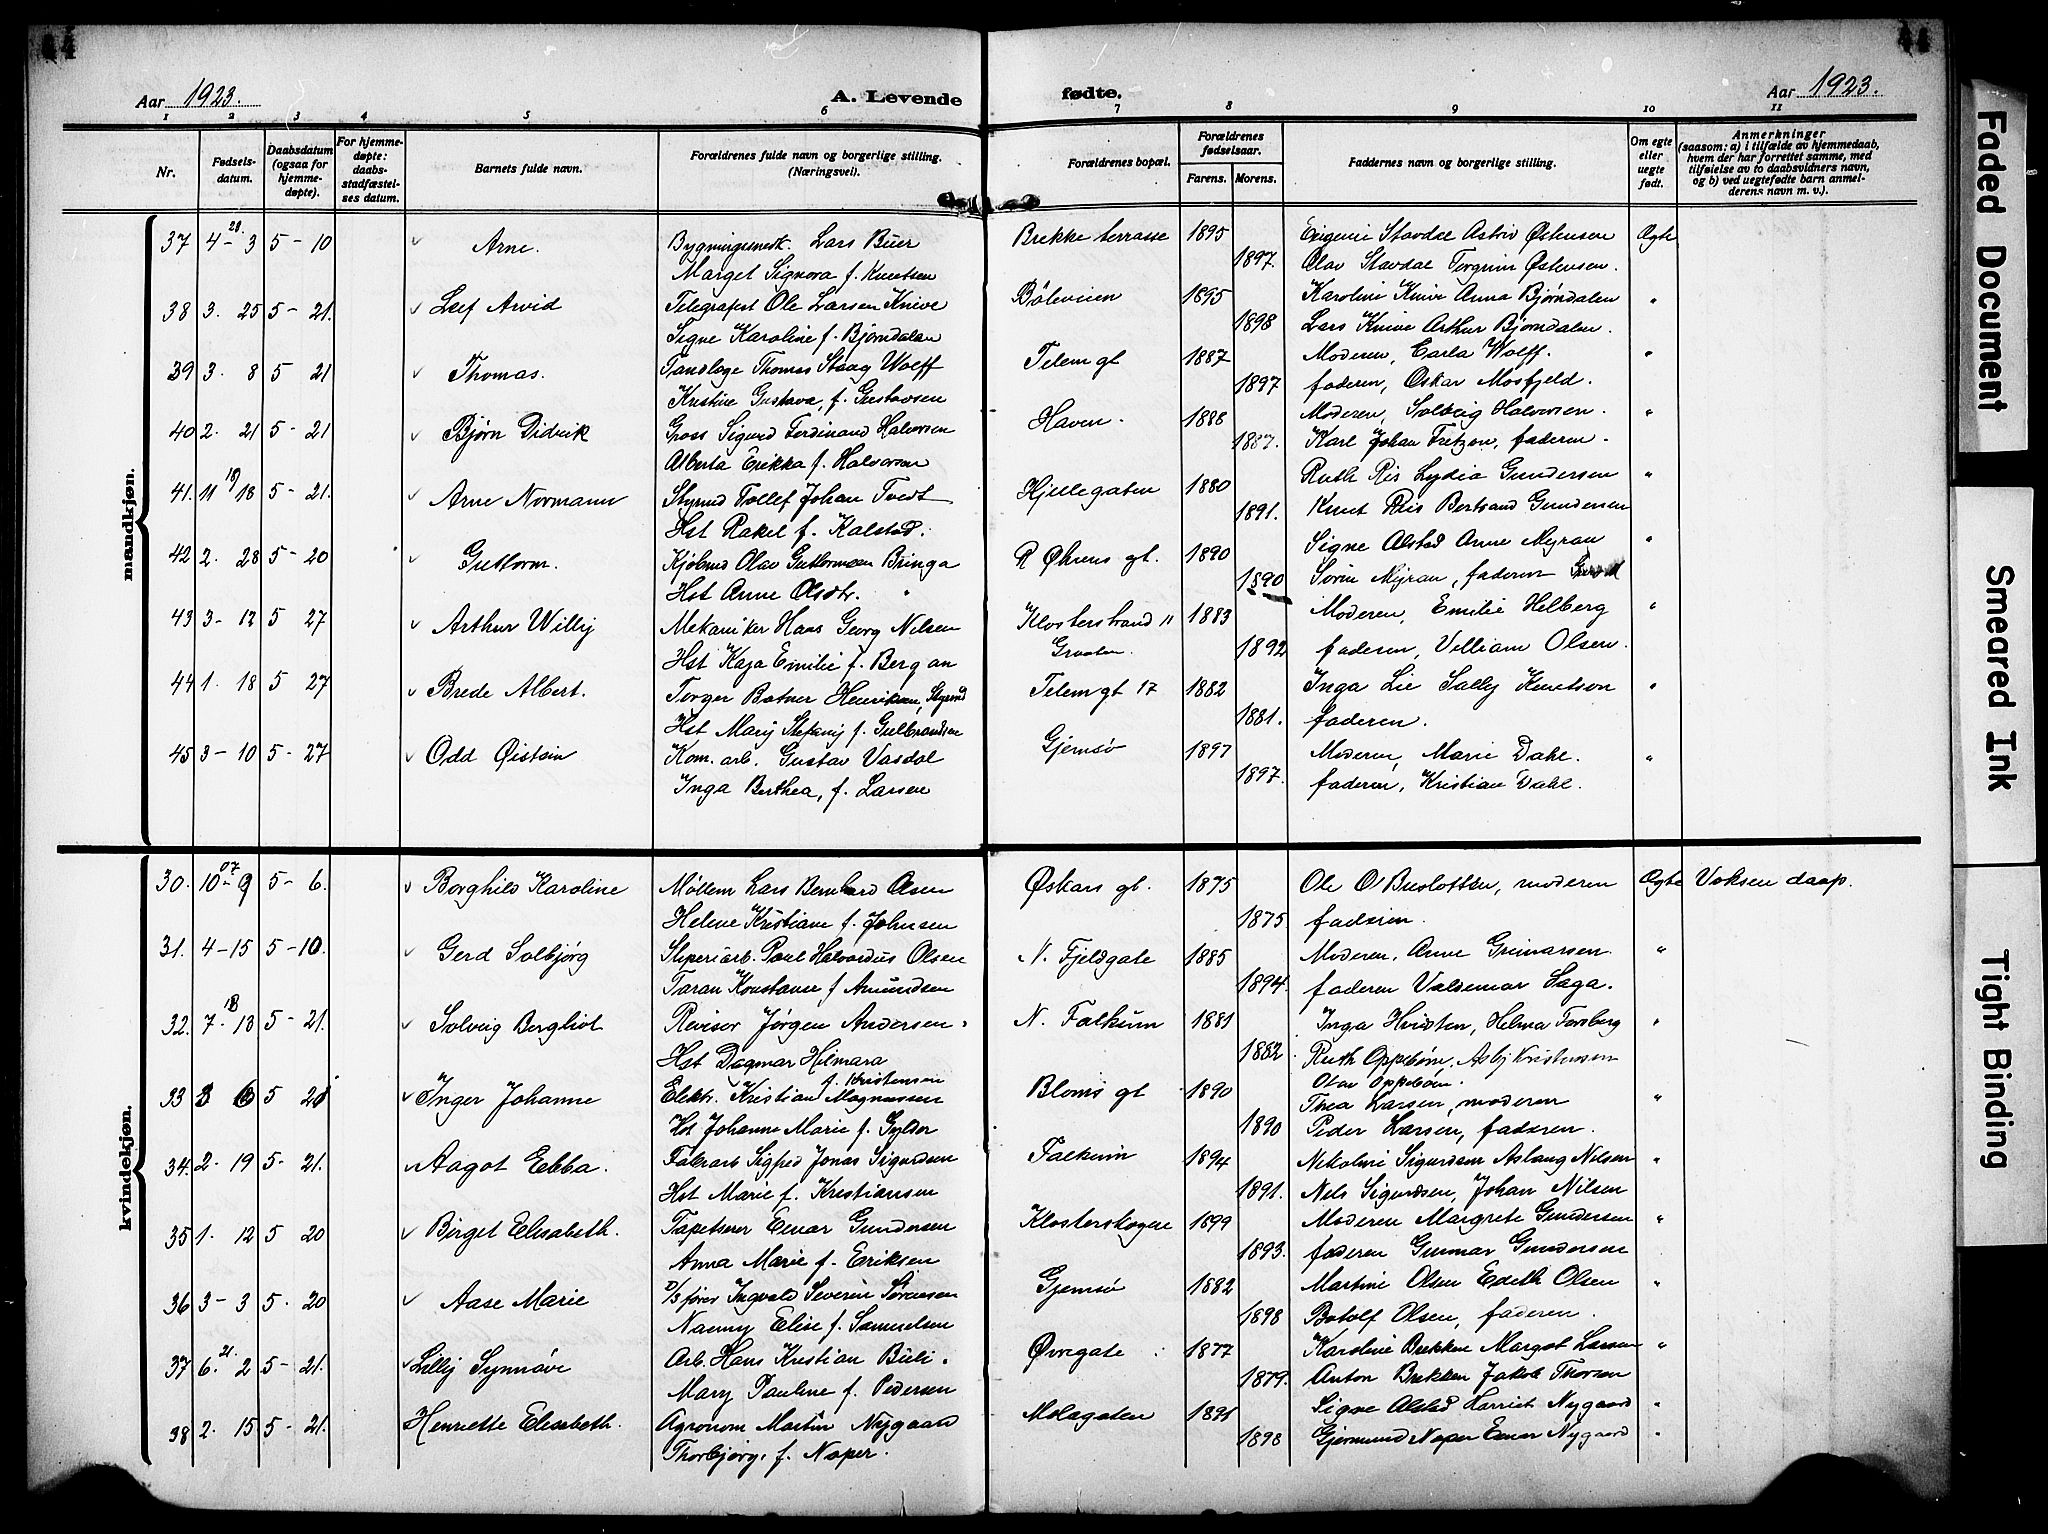 44
44
Aar 1923.
A. Levende
fødte.
Aar 1923.
1 2 3 4 5 6 7 8 9 10 11
Nr.
Fødsels-
datum.
Daabsdatum
(ogsaa for
hjemme-
døpte).
For hjemme-
døpte:
daabs-
stadfæstel-
ses datum.
Barnets fulde navn.
Forældrenes fulde navn og borgerlige stilling.
(Næringsvei).
Forældrenes bopæl.
Forældrenes
fødselsaar.
Farens. Morens.
Faddernes navn og borgerlige stilling.
Om egte
eller
uegte
født.
Anmerkninger
(saasom: a) i tilfælde av hjemmedaab,
hvem der har forrettet samme, med
tilføielse av to daabsvidners navn,
og b) ved uegtefødte barn anmel-
derens navn m. v.).
mandkjøn.
37 4-20 3 5-10 Arne. Lars Buer Brekke terrasse 1895 Eugenie Stavdal Astrid Østensen Ægte
Marget Signora f. Knutsen 1897. Olav Stavdal Torgrim Østensen.
38 3. 25 5-21. Leif Arvid Telegrafist Ole Larsen Knive Bøleveien 1895 Karoline Knive Anna Bjørndalen "
Signe Karoline f. Bjørndalen 1898 Lars Knive Arthur Bjørndalen.
39 3. 8 5 21 Thomas. Tandlæge Thomas Stang Wolff Telem gt 1887 Moderen, Carla Wolff. "
Kristine Gustava, f. Gustavsen 1897 faderen, Oskar Mosfjeld.
40 2. 21 5-21 Bjørn Didrik Gross Sigurd Ferdinand Halvorsen Haven. 1888 Moderen, Solveig Halvorsen. "
Alberta Erikka f. Halvorsen 1887. Karl Johan Fretzen, faderen.
41. 11 19/18 5-21. Arne Normann Styrmd Tollef Johan Tvedt Hjellegaten 1880 Ruth Ris Lydia Gundersen "
Hst Rakel f. Kalstad. 1891. Knut Riis Bertrand Gundersen
42 2. 28 5-20 Guttorm. Kjøbmd Olav Guttormsen Bringa R Øhrens gt. 1890 Signe Alstad Anne Myran "
Hst Anne Olsdtr. " 1890 Sørin Myran, faderen
43 3-12 5 27 Arthur Willy Mekaniker Hans Georg Nilsen Klosterstrand 11 1883 Moderen, Emilie Helberg "
Hst Kaja Emilie f. Bergan 1892 faderen, Villiam Olsen.
44 1. 18 5 27 Brede Albert. Torger Botner Henriksen, Styrmd Telem gt 17 1882 Inga Lie Sally Knutson "
Hst Mary Stefany f. Gulbrandsen 1881. faderen.
45 3-10 5-27 Odd Øistein Kom. arb. Gustav Vasdal Gjemsø 1897 Moderen, Marie Dahl. "
Inga Berthea, f. Larsen 1897. faderen, Kristian Dahl.
kvindekjøn.
30. 10-07 9 5-6. Borghild Karoline Møllem Lars Bernhard Olsen Øskars gt. 1875 Ole O Buslotten, moderen Ægte Voksen daap.
Helene Kristiane f. Johnsen 1875 faderen.
31. 4-15 5-10. Gerd Solbjørg Sliperiarb. Paul Halvardus Olsen N. Fjeldgate 1885 Moderen, Anne Greinarsen. "
Taran Konstanse f Amundsen 1894. faderen Valdemar Saga.
32. 7-18 13 5-21. Solveig Bergliot Revisor Jørgen Andersen N. Falkum 1881 Inga Hvidsten, Helma Forsberg "
Hst Dagmar Hilmara 1882. Ruth Oppebøen, Kristensen
f. Kristensen Olav Oppebøen.
33 3 6 5 21 Inger Johanne Elektr. Kristian Magnussen Bloms gt 1890 Thea Larsen, moderen "
Hst Johanne Marie f. Gylder 1890 Peder Larsen, faderen.
34. 2. 19 5-21. Aagot Ebba. Fabrarb Sigfred Jonas Sigurdsen Falkum 1894 Nikoline Sigurdsen Aslaug Nilsen "
Hst Marie f. Kristiansen 1891. Nels Sigurdsen, Johan Nilsen
35 1. 12 5 20 Birget Elisabeth. Tapetserer Einar Gundersen Klosterskogen 1899 Moderen Margrete Gundersen "
Anna Marie f. Eriksen 1893. faderen Gunnar Gundersen
36 3-3 5. 20 Aase Marie D/S fører Ingvald Severin Sørensen Gjemsø 1882 Martine Olsen Edith Olsen "
Nanny Elise f. Samuelsen 1898 Botolf Olsen, faderen.
37 6. 21. 2 5-21. Lilly Synnøve Arb. Hans Kristian Büli. Øvregate 1877 Karoline Brekken Margot Larsen "
Mary Pauline f. Pedersen 1879. Anton Brekken Jakob Thorsen
38 2. 15 5-21. Henriette Elisabeth. Agronom Martin Nygaard Molagaten 1891 Signe Alstad Harriet Nygaard "
Thorbjørg, f. Naper. 1898 Gjermund Naper Einar Nygaard "
Faded Document
Smeared Ink
Tight Binding